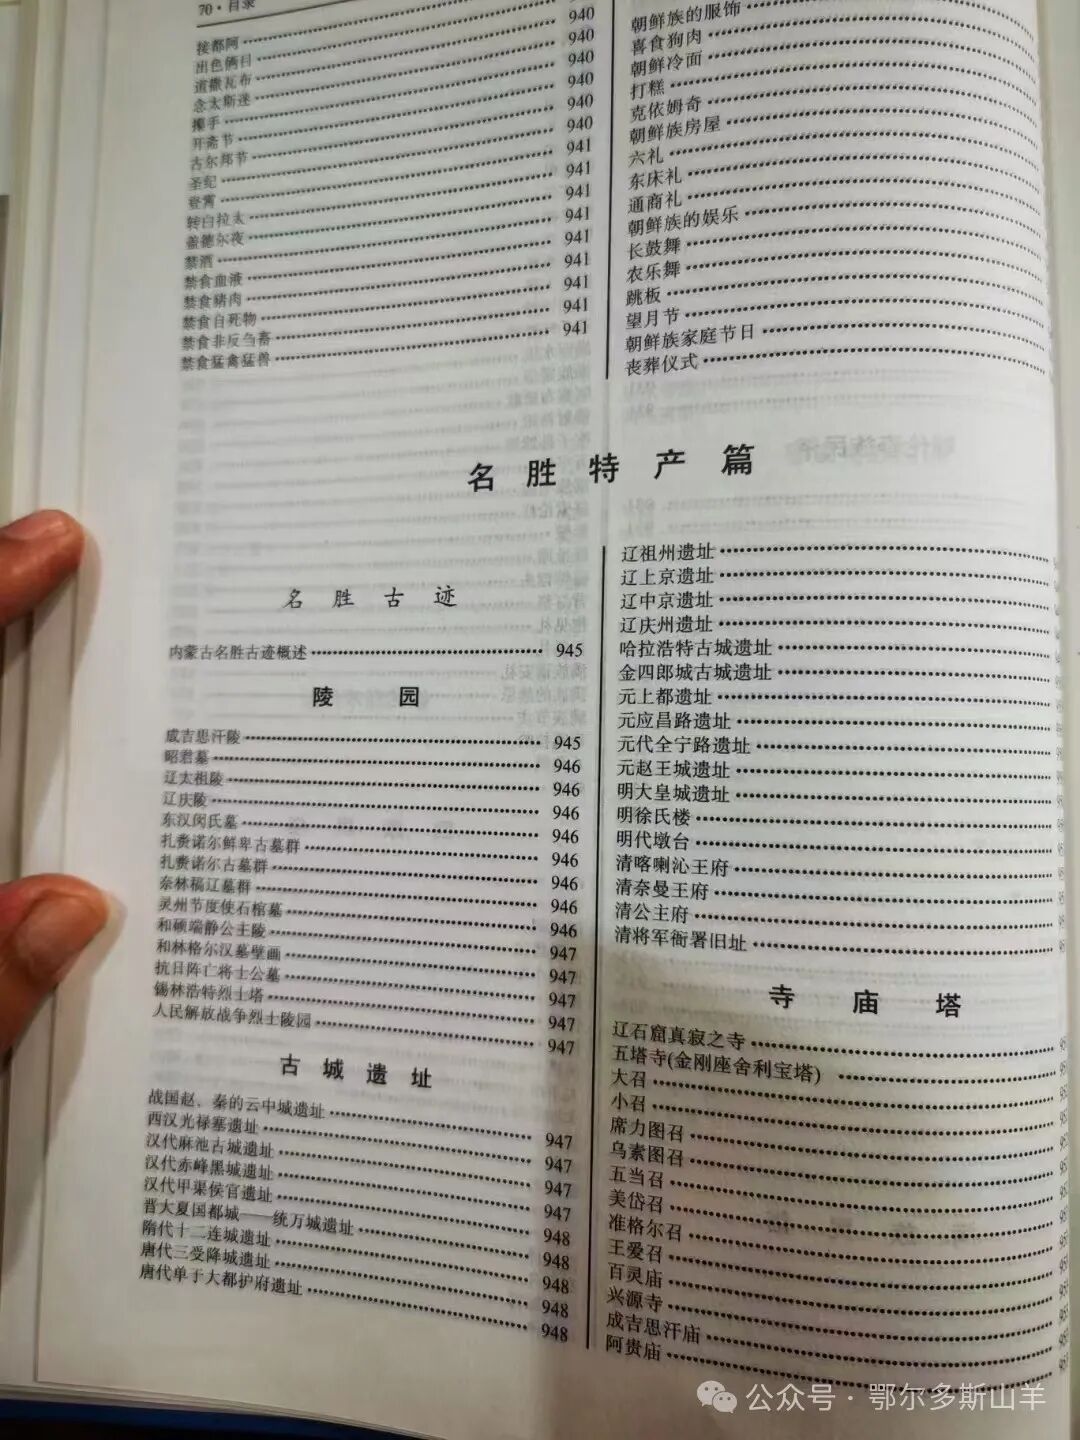 70·目录
接都阿 940
出色俩目 940
道撒瓦布 940
念太斯迷 940
攥手 940
开斋节 940
古尔邦节 941
圣纪 941
登霄 941
转白拉太 941
盖德尔夜 941
禁酒 941
禁食血液 941
禁食猪肉 941
禁食自死物 941
禁食非反刍畜
禁食猛禽猛兽
朝鲜族的服饰
喜食狗肉
朝鲜冷面
打糕
克依姆奇
朝鲜族房屋
六礼
东床礼
通商礼
朝鲜族的娱乐
长鼓舞
农乐舞
跳板
望月节
朝鲜族家庭节日
丧葬仪式
名胜特产篇
名胜古迹
内蒙古名胜古迹概述 945
陵园
成吉思汗陵 945
昭君墓 946
辽太祖陵 946
辽庆陵 946
东汉闵氏墓 946
扎赉诺尔鲜卑古墓群 946
扎赉诺尔古墓群 946
奈林稿辽墓群 946
灵州节度使石棺墓 946
和硕端静公主陵 947
和林格尔汉墓壁画 947
抗日阵亡将士公墓 947
锡林浩特烈士塔 947
人民解放战争烈士陵园 947
古城遗址
战国赵、秦的云中城遗址 947
西汉光禄塞遗址 947
汉代麻池古城遗址 947
汉代赤峰黑城遗址 947
汉代甲渠侯官遗址 948
晋大夏国都城——统万城遗址 948
隋代十二连城遗址 948
唐代三受降城遗址 948
唐代单于大都护府遗址 948
辽祖州遗址
辽上京遗址
辽中京遗址
辽庆州遗址
哈拉浩特古城遗址
金四郎城古城遗址
元上都遗址
元应昌路遗址
元代全宁路遗址
元赵王城遗址
明大皇城遗址
明徐氏楼
明代墩台
清喀喇沁王府
清奈曼王府
清公主府
清将军衙署旧址
寺庙塔
辽石窟真寂之寺
五塔寺(金刚座舍利宝塔)
大召
小召
席力图召
乌素图召
五当召
美岱召
准格尔召
王爱召
百灵庙
兴源寺
成吉思汗庙
阿贵庙
公众号·鄂尔多斯山羊